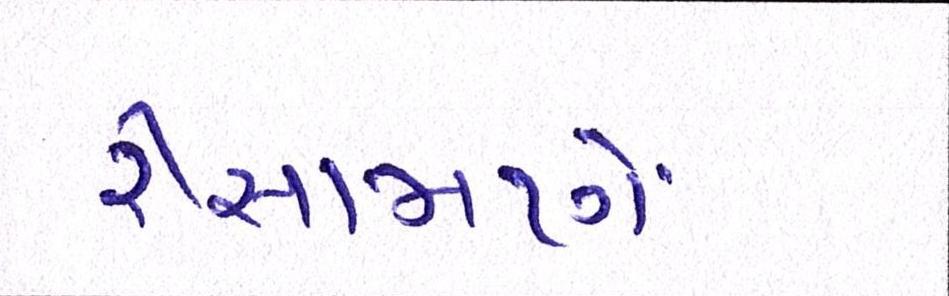 રીસામણેં